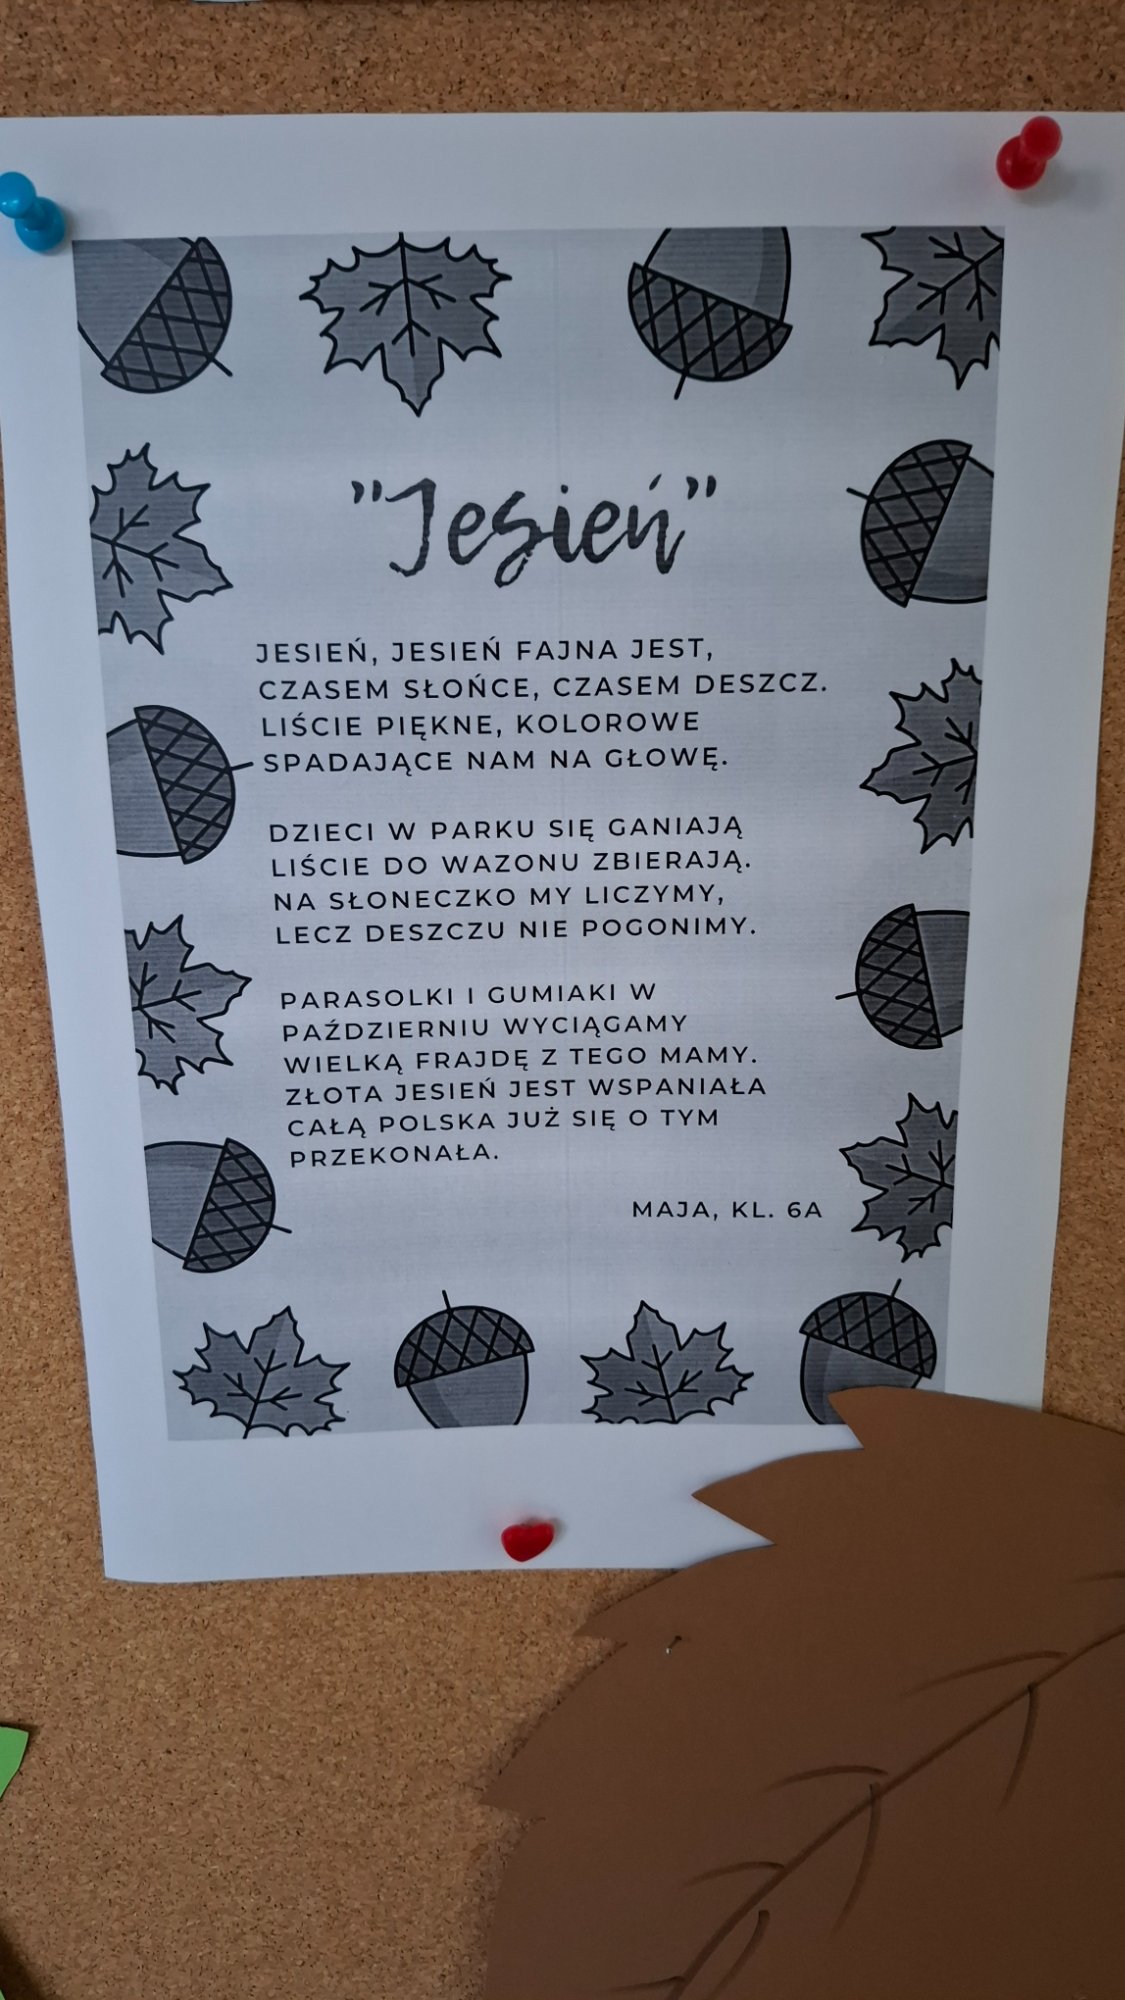 "Jesień"
JESIEŃ, JESIEŃ FAJNA JEST,
CZASEM SŁOŃCE, CZASEM DESZCZ.
LIŚCIE PIĘKNE, KOLOROWE
SPADAJĄCE NAM NA GŁOWĘ.
DZIECI W PARKU SIĘ GANIAJĄ
LIŚCIE DO WAZONU ZBIERAJĄ.
NA SŁONECZKO MY LICZYMY,
LECZ DESZCZU NIE POGONIMY.
PARASOLKI I GUMIAKI W
PAŹDZIERNIU WYCIĄGAMY
WIELKĄ FRAJDĘ Z TEGO MAMY.
ZŁOTA JESIEŃ JEST WSPANIAŁA
CAŁĄ POLSKA JUŻ SIĘ O TYM
PRZEKONAŁA.
MAJA, KL. 6A